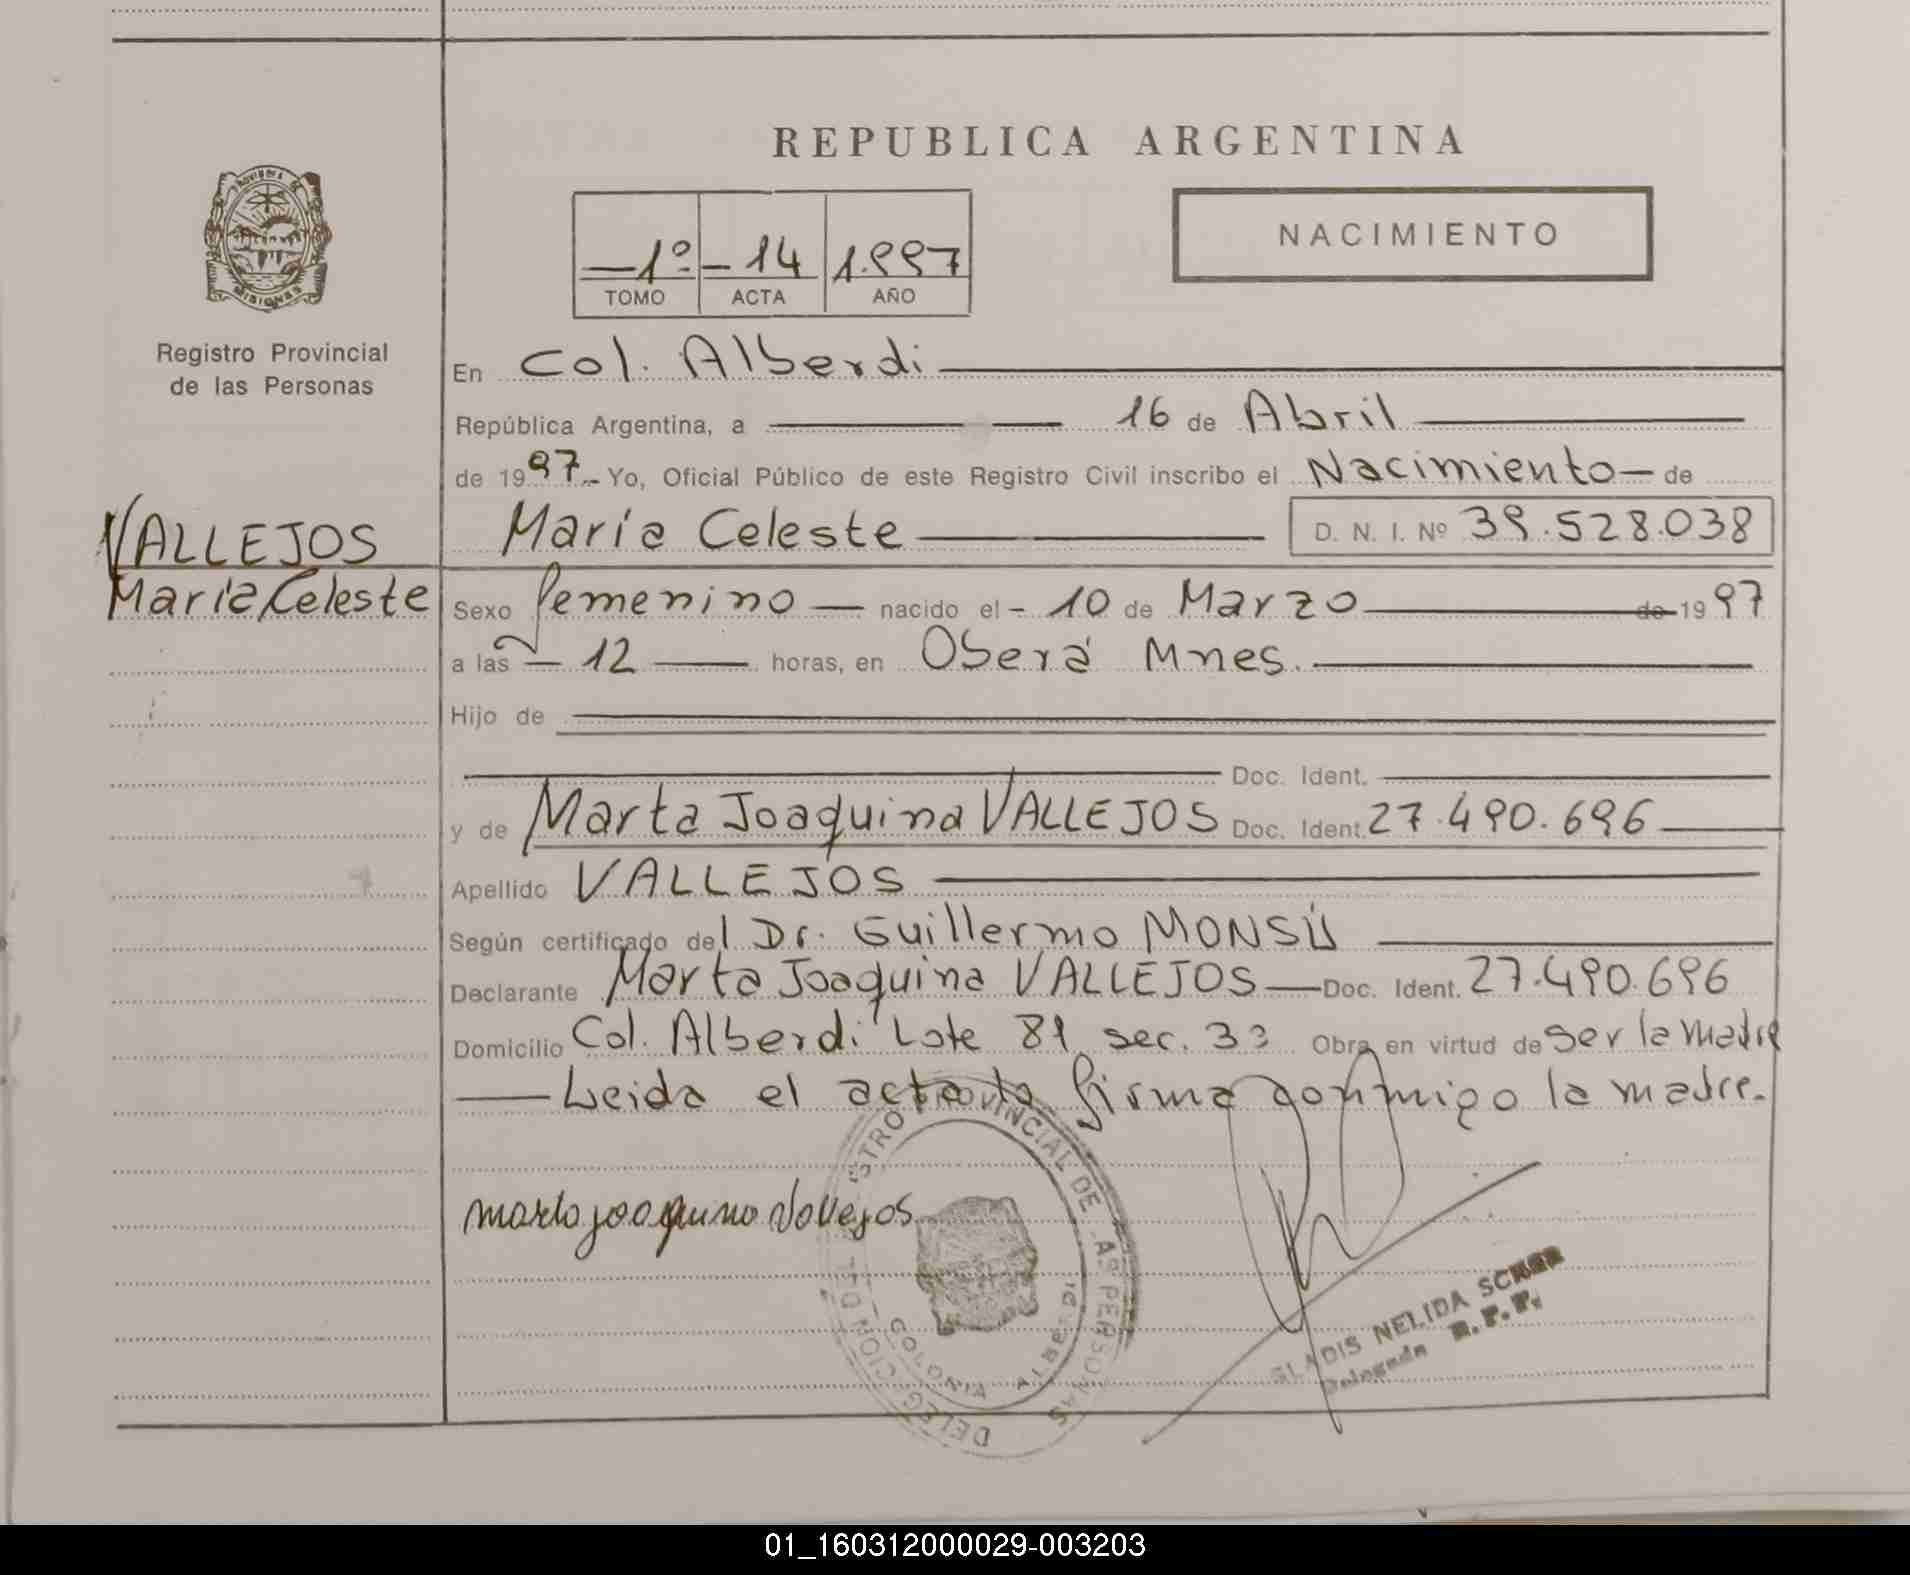 REPUBLICA ARGENTINA
1º - 14 1.997
TOMO ACTA AÑO
NACIMIENTO
MISIONES
Registro Provincial
de las Personas
En Col. Alberdi
República Argentina, a 16 de Abril
de 1997.- Yo, Oficial Público de este Registro Civil inscribo el Nacimiento de
VALLEJOS
María Celeste
María Celeste D. N. I. Nº 39.528.038
Sexo femenino nacido el - 10 de Marzo de 1997
a las 12 horas, en Oberá Mnes.
Hijo de
Doc. Ident.
y de Marta Joaquina VALLEJOS Doc. Ident. 27.490.696
Apellido VALLEJOS
Según certificado del Dr. Guillermo MONSÚ
Declarante Marta Joaquina VALLEJOS Doc. Ident. 27.490.696
Domicilio Col. Alberdi Lote 81 sec. 33 Obra en virtud de ser la madre
Leida el acta la firma conmigo la madre.
REGISTRO PROVINCIAL DE LAS PERSONAS
DELEGACION
COLONIA ALBERDI
GLADIS NELIDA
Delegada R.P.P.
01_160312000029-003203